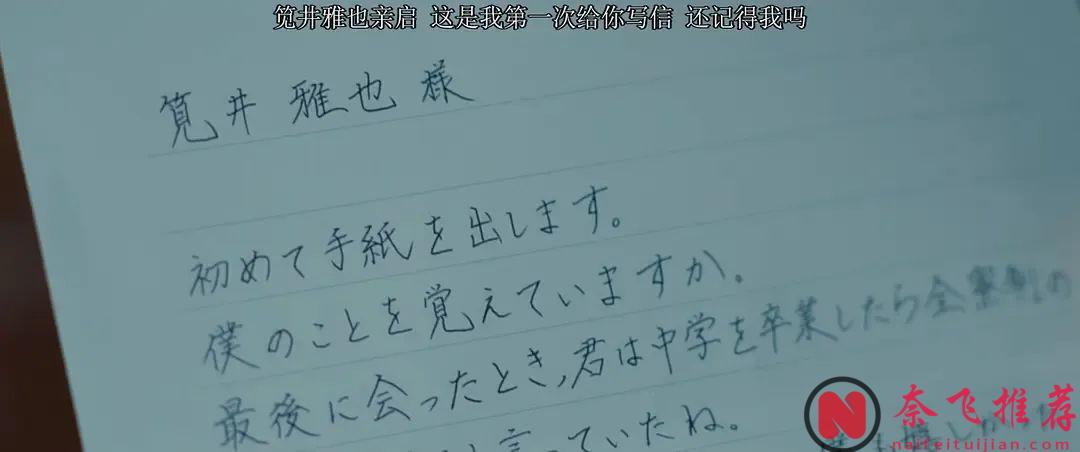 笕井雅也亲启 这是我第一次给你写信 还记得我吗
筧井 雅也 様
初めて手紙を出します。
僕のことを覚えていますか。
最後に会ったとき、君は中学を卒業したら全寮制の
言っていたね。
奈飞推荐
naifeituijian.com